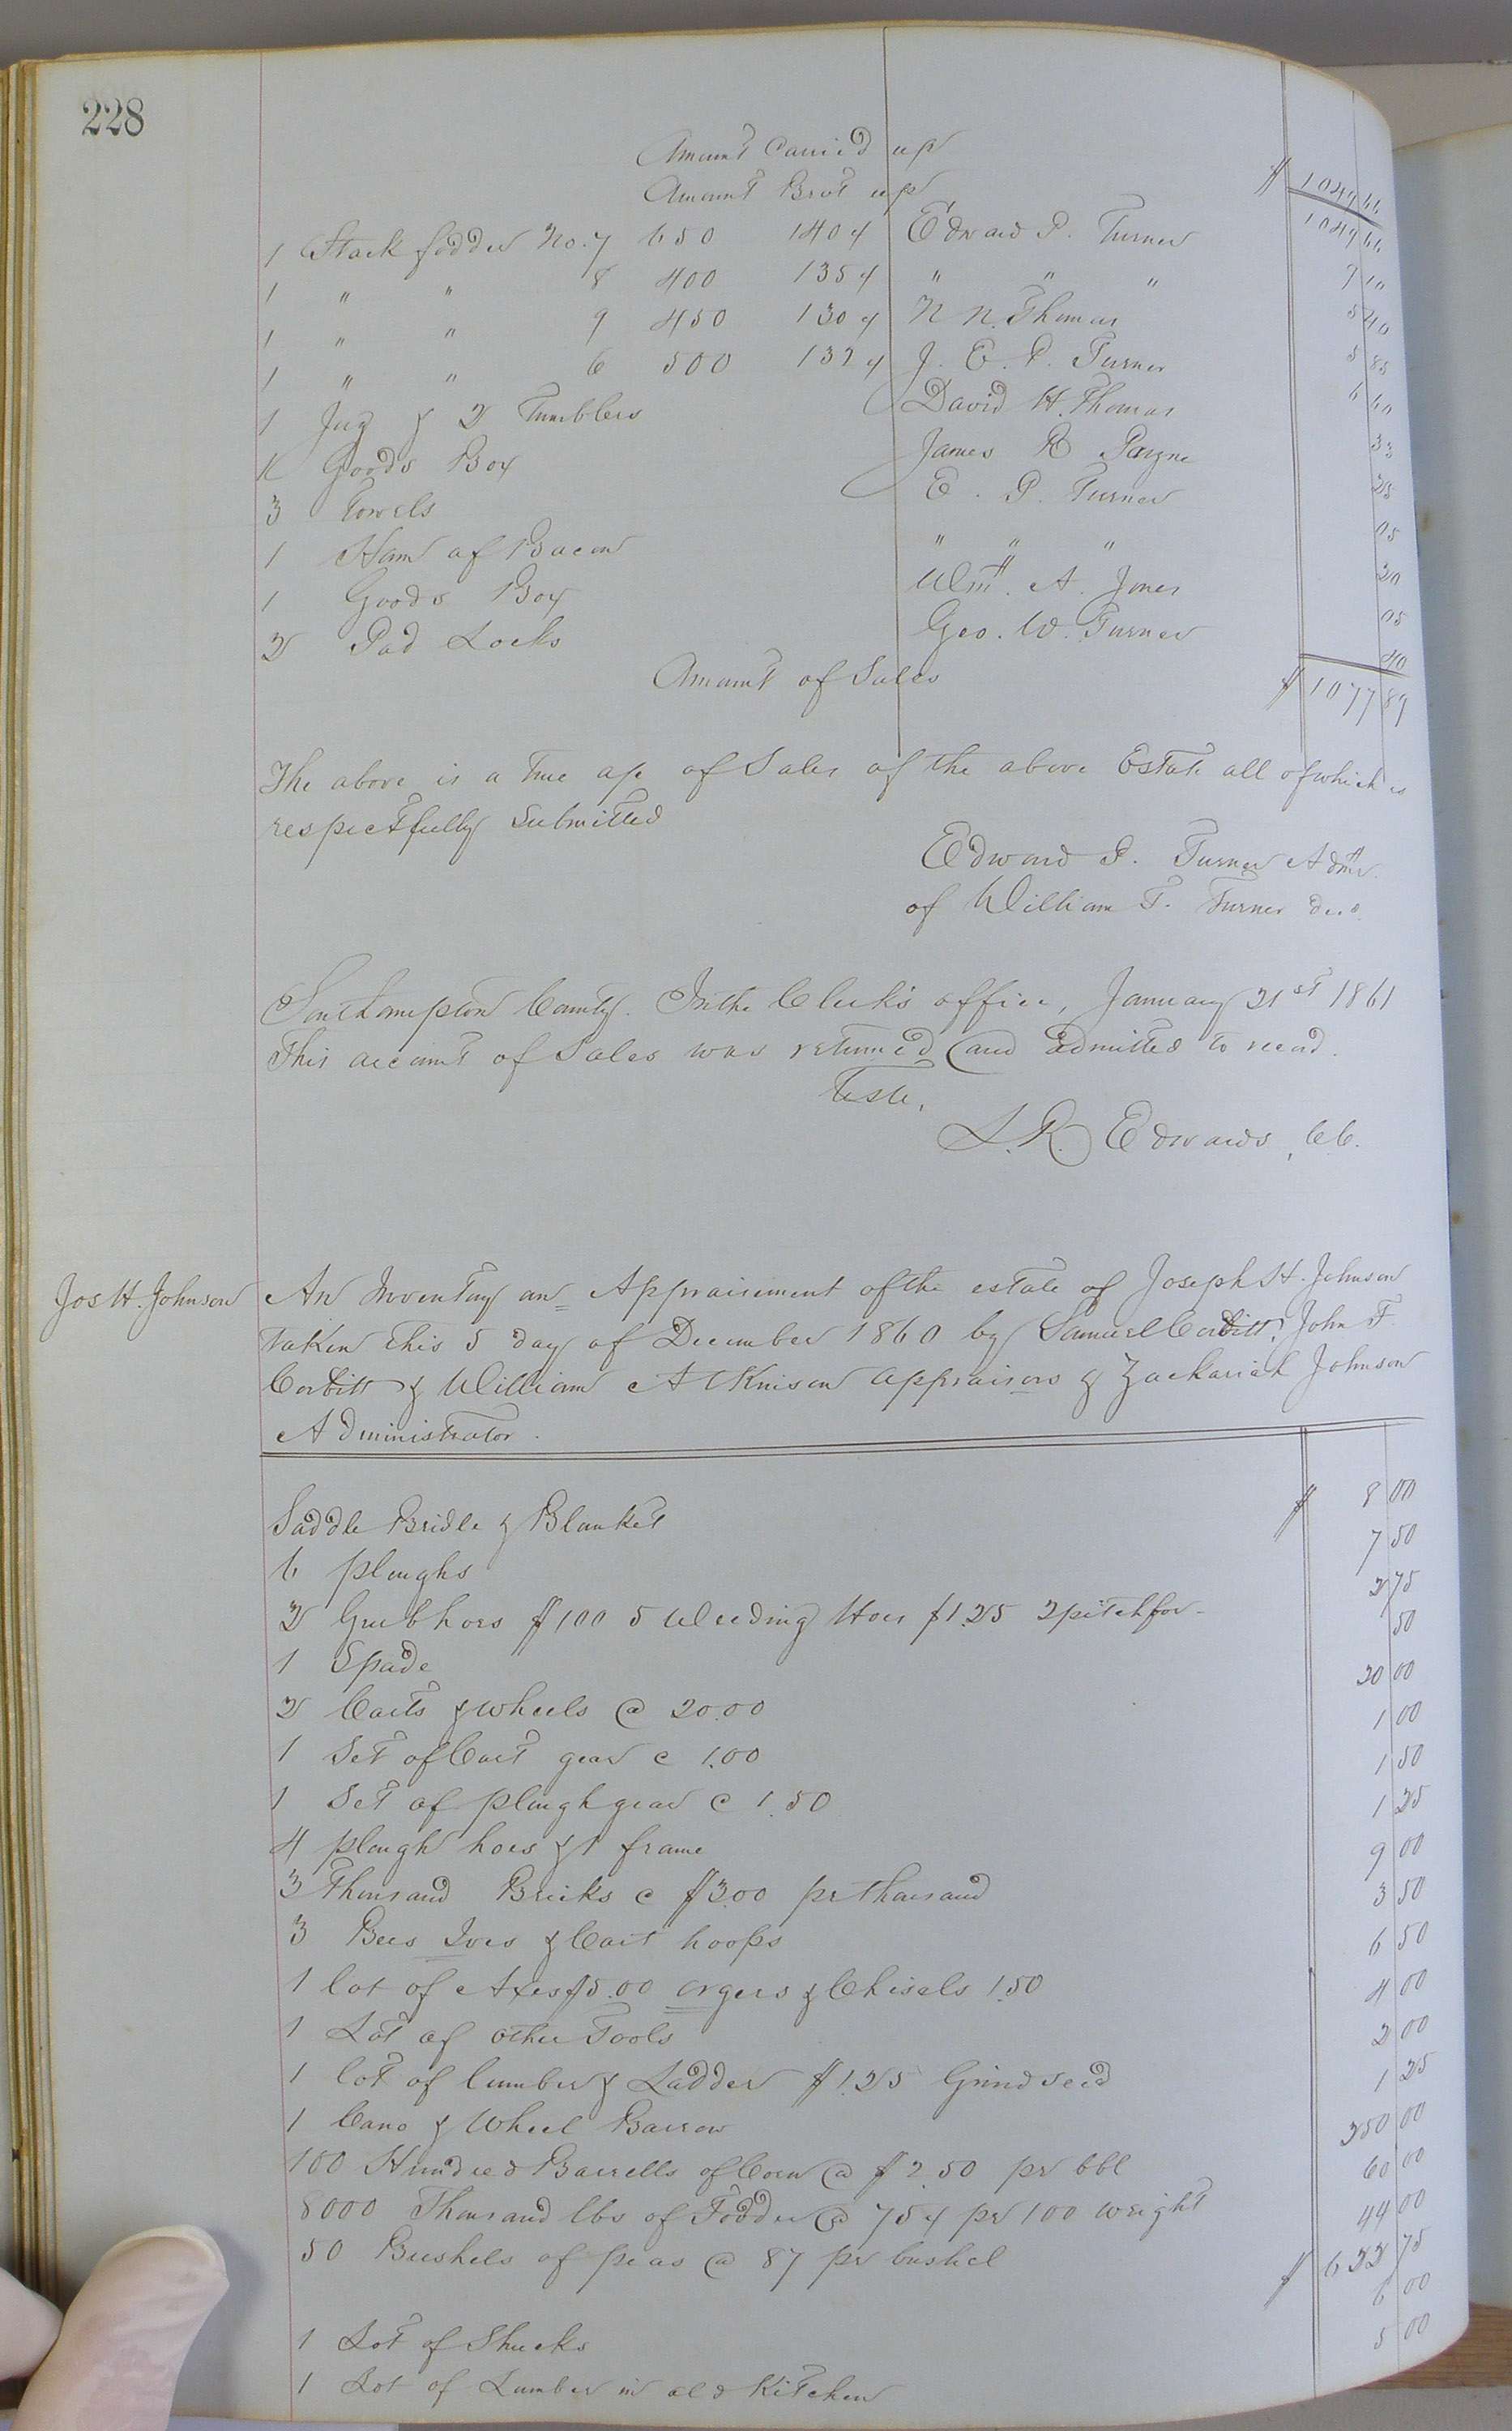 228
Amount Carried up $ 1049 66
Amount Brot up 1049 66
1 Stack fodder No. 7 650 140 ¢ Edward P. Turner 9 10
1 " " 8 400 135 ¢ " " " 5 40
1 " " 9 450 130 ¢ N N. Thomas 5 85
1 " " 6 500 132 ¢ J. E. P. Turner 6 60
1 Jug & 2 Tumblers David H. Thomas 33
1 Goods Box James R Payne 25
3 Towels E. P. Turner 05
1 Ham of Bacon " " " 20
1 Goods Box Wm. A. Jones 05
2 Pad Locks Geo. W. Turner 40
Amount of Sales $ 1077 89
The above is a true a/c of Sales of the above Estate all of which is
respectfully submitted
Edward P. Turner Admr.
of William T. Turner decd.
Southampton County. In the Clerk's office, January 21st 1861
This account of Sales was returned and admitted to record.
Teste,
L. R. Edwards, CC.
Jos H. Johnson
An Inventory an Appraisement of the estate of Joseph H. Johnson
taken this 5 day of December 1860 by Samuel Corbitt, John F.
Corbitt & William Atkinson appraisors & Zachariah Johnson
Administrator.
Saddle Bridle & Blanket $ 8 00
6 ploughs 7 50
2 Grub hoes $1 00 5 Weeding Hoes $1.25 2 pitch for- 2 75
1 Spade 50
2 Carts & wheels @ 20.00 20 00
1 Set of Cart gear @ 1.00 1 00
1 Set of plough gear @ 1.50 1 50
4 plough hoes & 1 frame 1 25
3 Thousand Bricks @ $3.00 pr thousand 9 00
3 Bees Ives & Cart hoops 3 50
1 lot of Axes $5.00 orgers & Chisels 1.50 6 50
1 Lot of other Tools 4 00
1 lot of lumber & Ladder $1.25 Grind seed 2 00
1 Cano & Wheel Barrow 1 25
100 Hundred Barrells of Corn @ $2.50 pr bbl 250 00
8000 Thousand lbs of Fodder @ 75 ¢ pr 100 weight 60 00
50 Bushels of peas @ 87 pr bushel 44 00
$ 622 75
1 Lot of Shucks 6 00
1 Lot of Lumber in old Kitchen 5 00